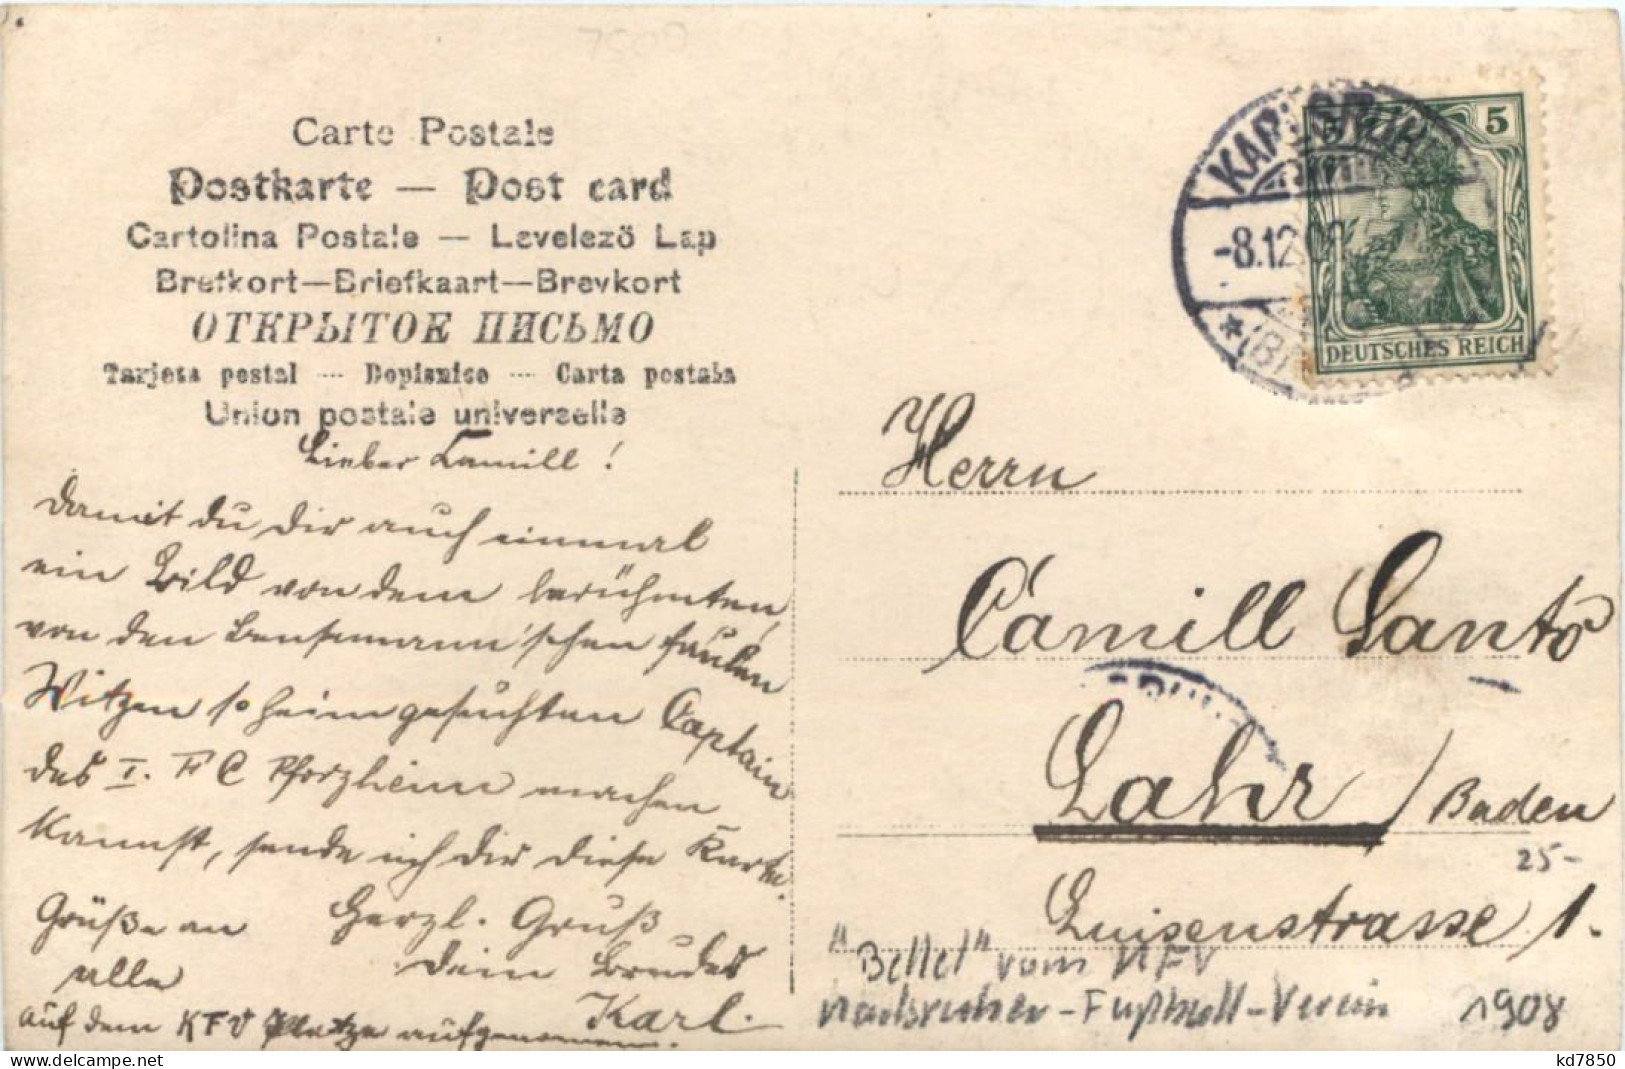 Carte Postale
Postkarte — Post card
Cartolina Postale — Levelező Lap
Brefkort—Briefkaart—Brevkort
ОТКРЫТОЕ ПИСЬМО
Tarjeta postal — Dopisnice — Carta postala
Union postale universelle
Lieber Camill!
Damit du dir auch einmal
ein Bild von dem berühmten,
von den Bensemann'schen faulen
Witzen so heimgesuchten Captain
des I. F C Pforzheim machen
kannst, sende ich dir diese Karte.
Grüße an
alle
Herzl. Gruß
Dein Bruder
Karl.
auf dem KFV Platze aufgenommen.
KARLSRUHE
-8.12.08
5
DEUTSCHES REICH
Herrn
Camill Santo
Lahr / Baden
25-
Luisenstrasse 1.
vom KFV
Karlsruher-Fußball-Verein 1908
kd7850